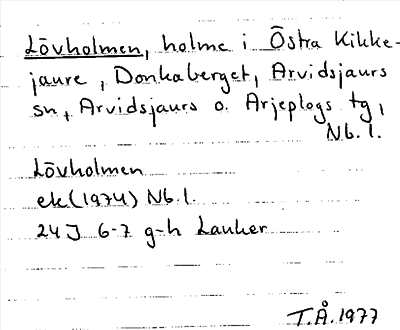 Lövholmen, holme i Östra Kikke-
jaure, Donkaberget, Arvidsjaurs
sn, Arvidsjaurs o. Arjeplogs tg,
Nb. l.
Lövholmen
ek (1974) Nb. l.
24 J 6-7 g-h Lauker
T.Å. 1977